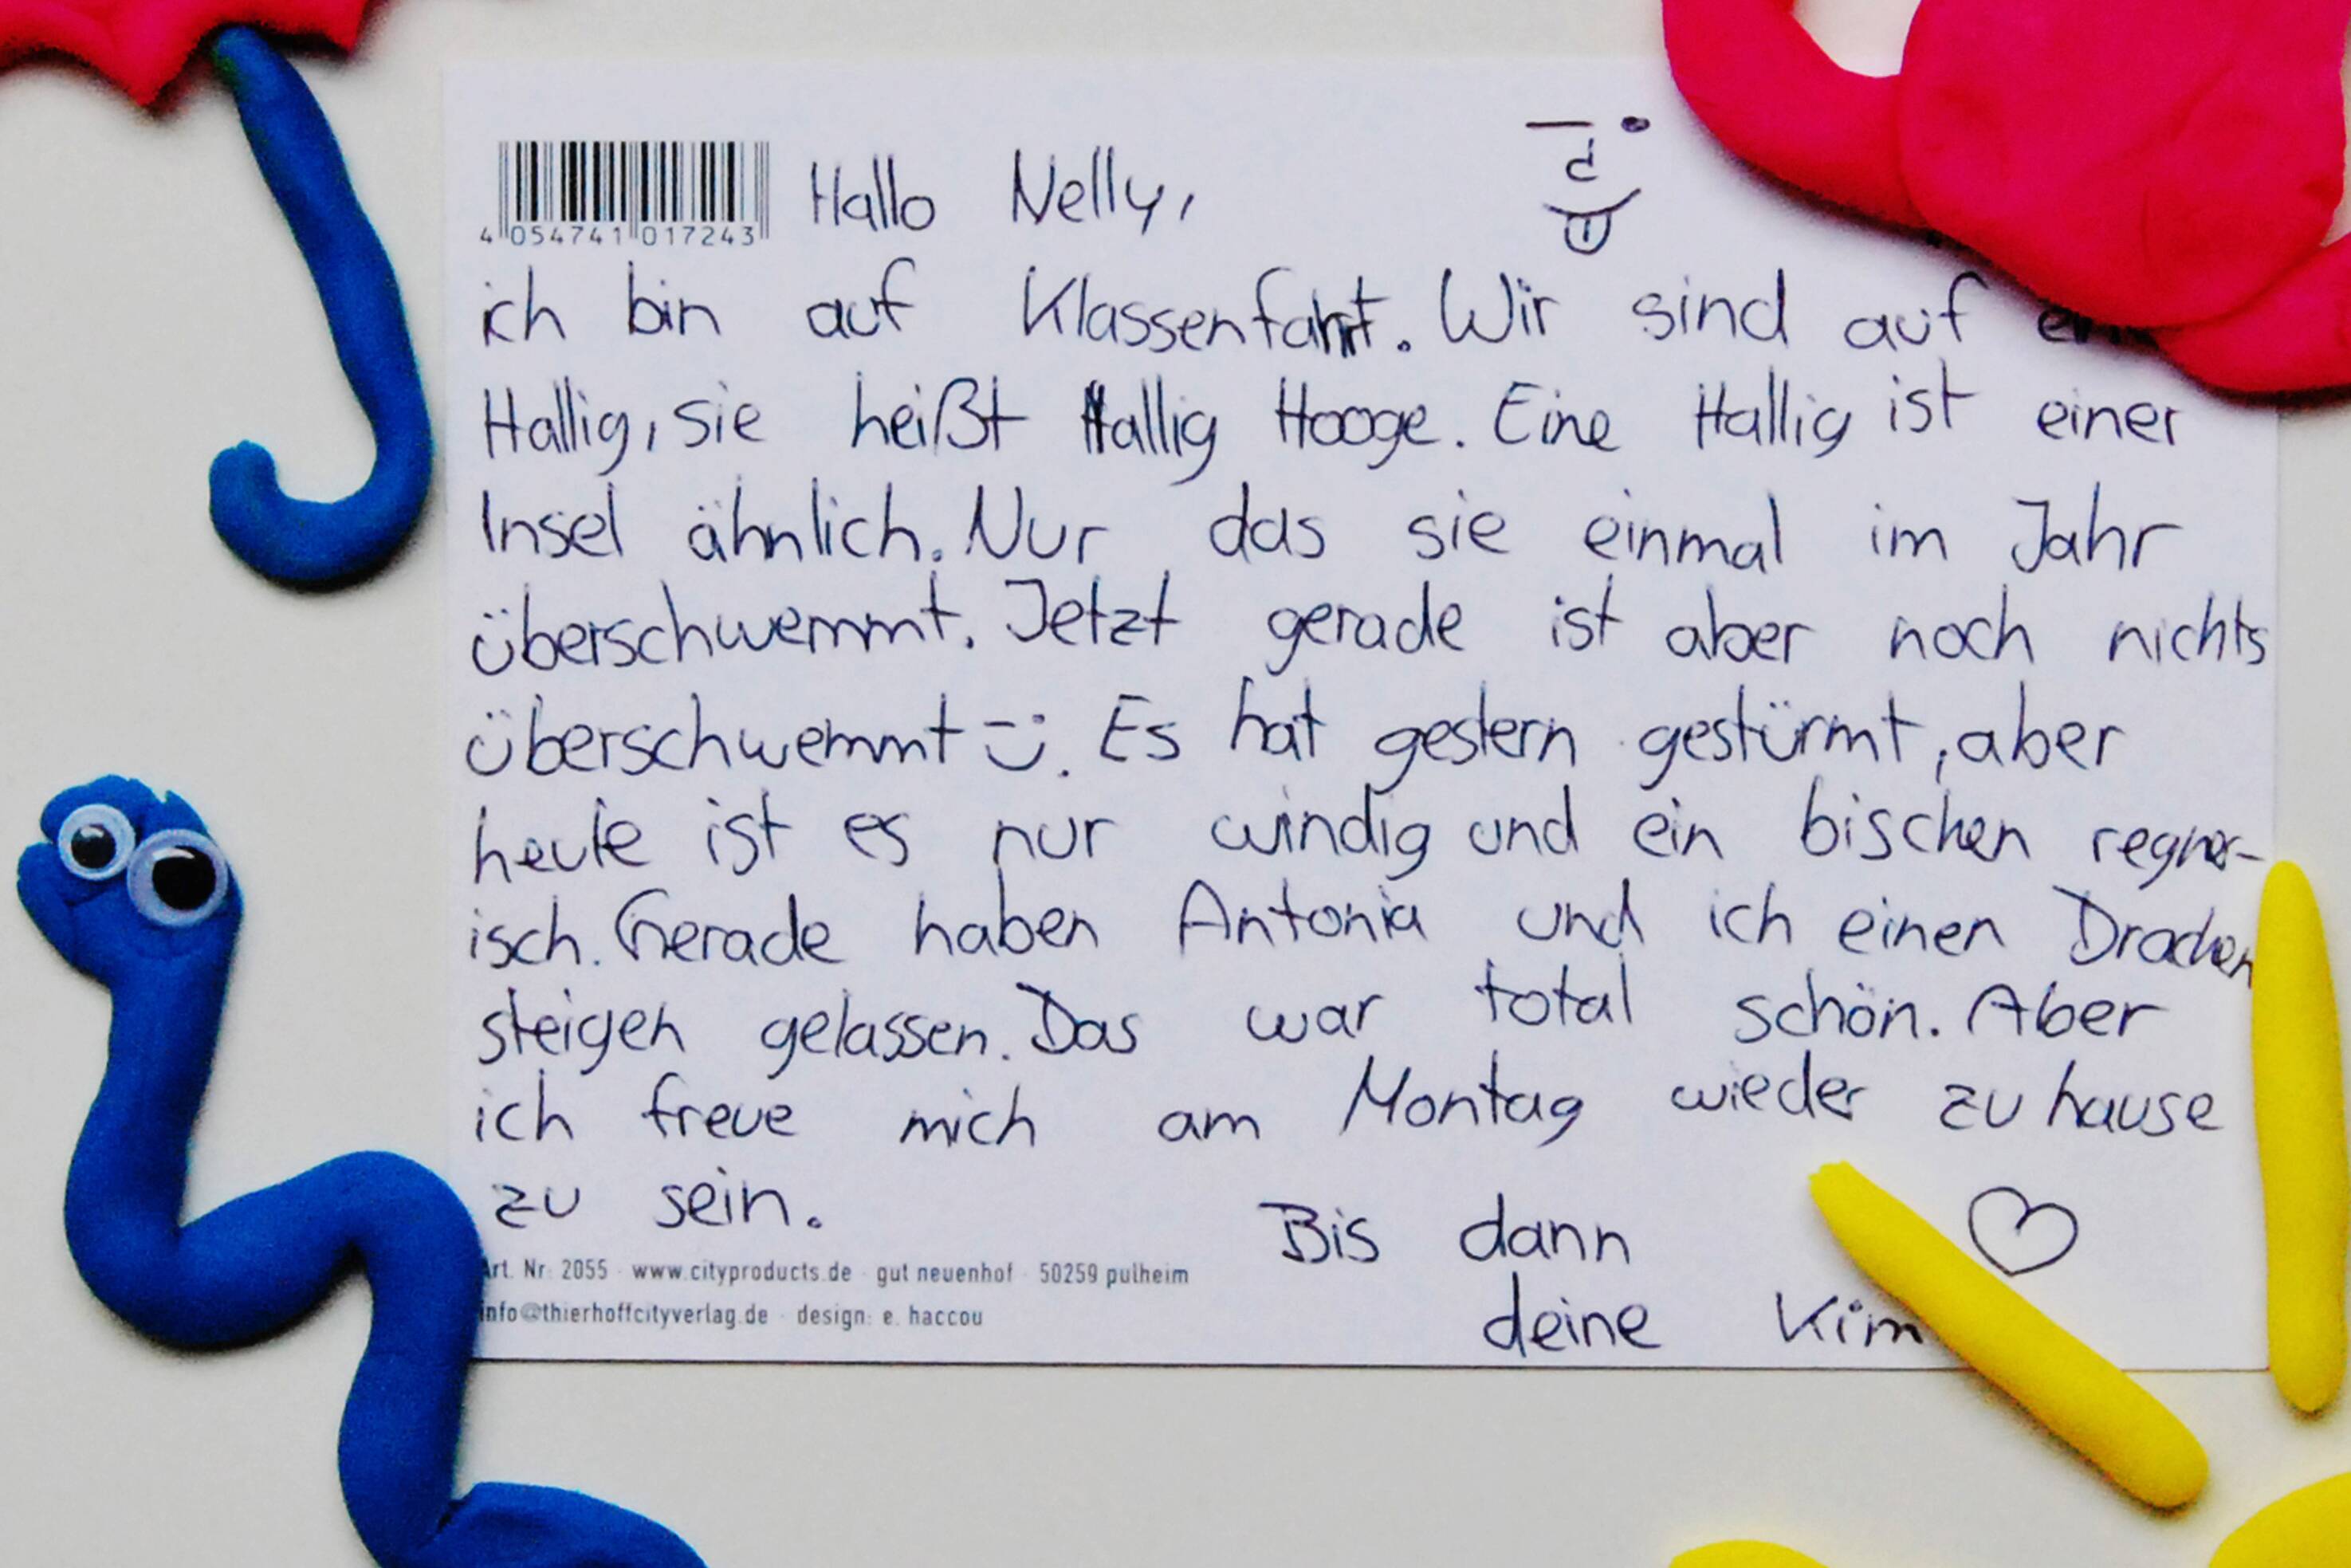 4 054741 017243
Hallo Nelly,
ich bin auf Klassenfahrt. Wir sind auf
Hallig, sie heißt Hallig Hooge. Eine Hallig ist einer
Insel ähnlich. Nur das sie einmal im Jahr
überschwemmt. Jetzt gerade ist aber noch nichts
überschwemmt. Es hat gestern gestürmt, aber
heute ist es nur windig und ein bischen regner-
isch. Gerade haben Antonia und ich einen Drachen
steigen gelassen. Das war total schön. Aber
ich freue mich am Montag wieder zu hause
zu sein.
Bis dann
deine Kim
Art. Nr. 2055 · www.cityproducts.de · gut neuenhof · 50259 pulheim
info@thierhoffcityverlag.de · design: e. haccou